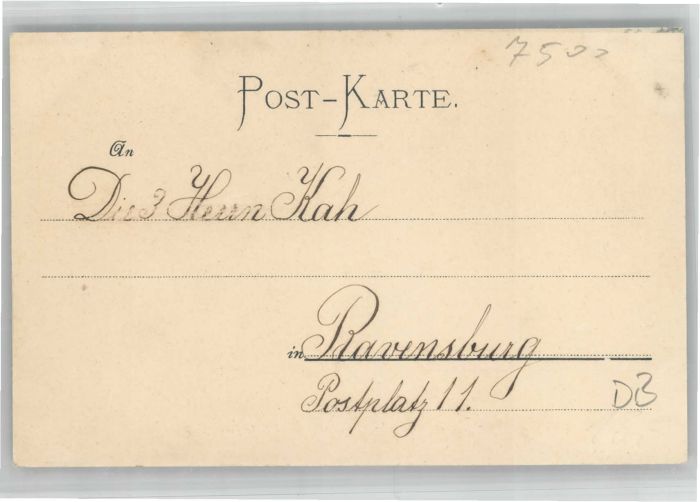 7500
POST-KARTE.
An
Die 3 Herrn Kah
in Ravensburg
Postplatz 11.
DB